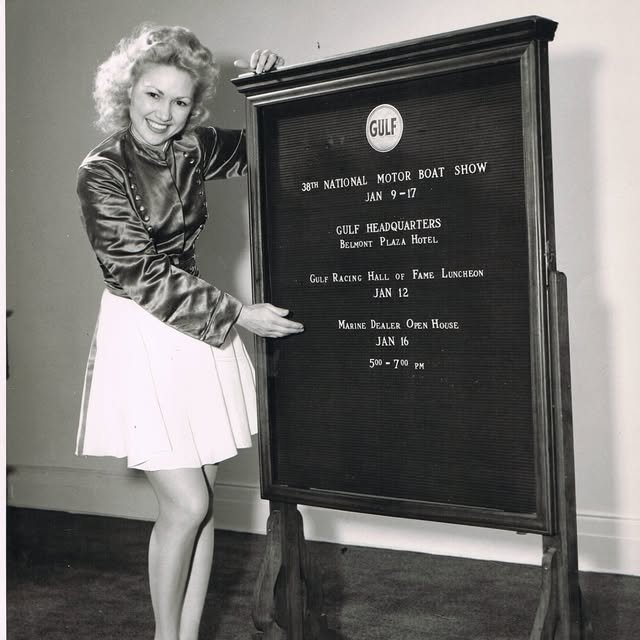 GULF
38TH NATIONAL MOTOR BOAT SHOW
JAN 9-17
GULF HEADQUARTERS
BELMONT PLAZA HOTEL
GULF RACING HALL OF FAME LUNCHEON
JAN 12
MARINE DEALER OPEN HOUSE
JAN 16
5:00 - 7:00 PM